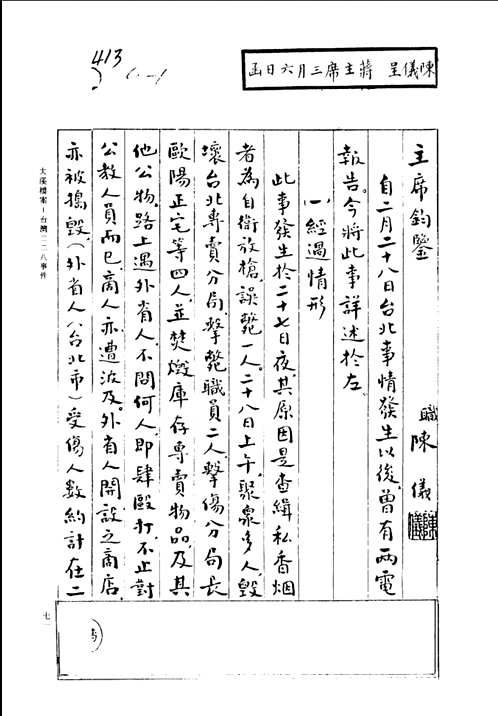 413
陳儀呈 蔣主席三月六日函
主席鈞鑒
職陳儀
自二月二十八日台北事情發生以後，曾有兩電
報告。今將此事詳述於左。
一 經過情形
此事發生於二十七日夜，其原因是查緝私香烟
者為自衛放槍，誤斃一人。二十八日上午，聚眾多人，毀
壞台北專賣分局，擊斃職員二人，擊傷分局長
歐陽正宅等四人，並焚燬庫存專賣物品，及其
他公物。路上遇外省人，不問何人，即肆毆打，不止對
公教人員而已，商人亦遭波及。外省人開設之商店，
亦被搗毀，（外省人（台北市）受傷人數約計在二
大溪檔案－台灣二二八事件
七一